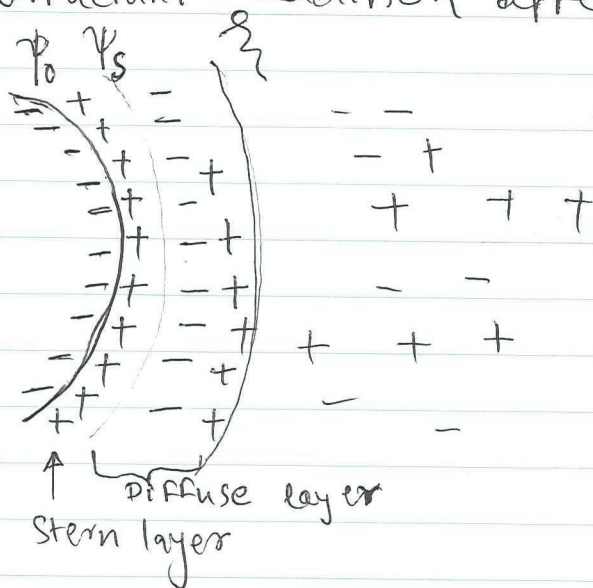 ψ₀ ψs ξ
Diffuse layer
Stern layer